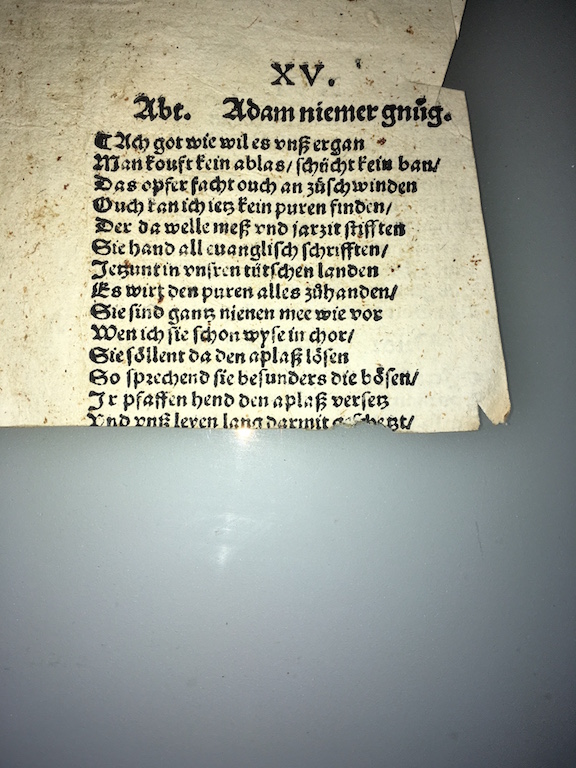 XV.
Abt. Adam niemer gnůg.
¶ Ach got wie wil es vnß ergan
Man kouft kein ablas/ schücht kein ban/
Das opfer facht ouch an zůschwinden
Ouch kan ich ietz kein puren finden/
Der da welle meß vnd jarzit stifften
Sie hand all euanglisch schrifften/
Jetzunt in vnsren tütschen landen
Es wirt den puren alles zůhanden/
Sie sind gantz nienen mee wie vor
Wen ich sie schon wyse in chor/
Sie söllent da den aplaß lösen
So sprechend sie besunders die bösen/
Ir pfaffen hend den aplaß versetz
Vnd vnß leyen lang darmit geschetzt/